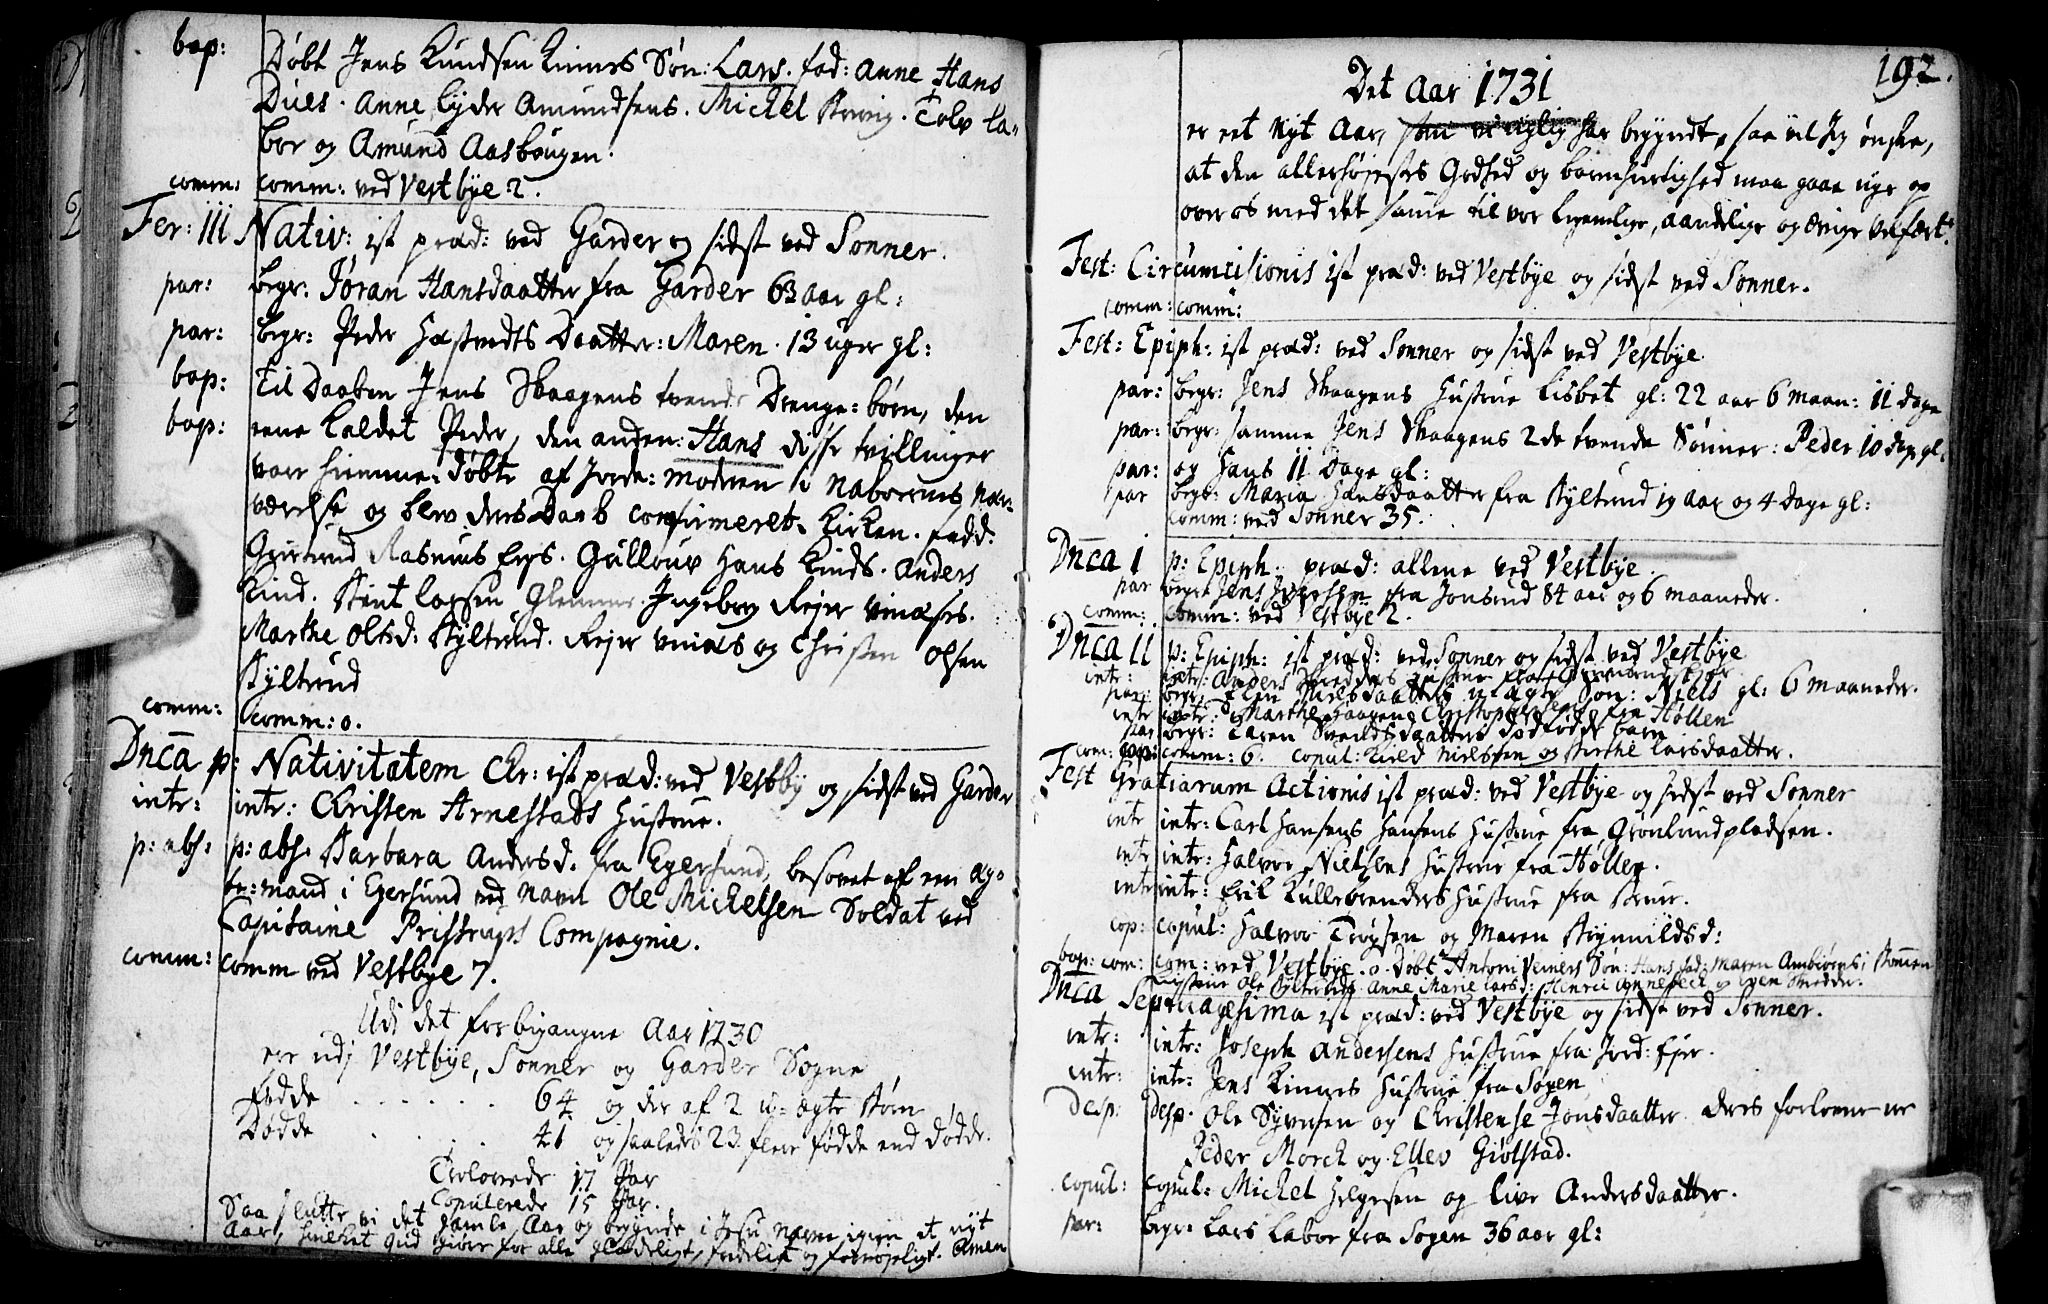 bap: Døbt Jens Knudsen Kinnes Søn: Lars. fad: Anne Hans
Dues. Anne Lyder Amundsens. Michel Storrig. Tolv La-
bor og Amund Aasbougen.
comm: comm: ved Vestbye 2.
Fer: III Nativ: ist præd: ved Garder og sidst ved Sonner.
par: begr: Jøran Hansdaatter fra Garder 63 aar gl:
par: begr: Peder Hostvedts Daatter: Maren. 13 uger gl:
bap: Til Daaben Jens Skaagens tvende Drenge-børn, den
bap: eene kaldet Peder, den anden: Hans disse tvillinger
vare hiemme-døbte af Jorde-modren i Naboernes nær-
værelse og blev deres Daab confirmeret i Kirken. fadd:
Giertrud Rasmus Eegs. Gullouv Hans Kinds. Anders
Kind. Bent Lassen Glenne. Ingeborg Rejer Vinæses.
Marthe Olsd: Kyltrund. Rejer Vinæs og Christen Olsen
Kyltrund
comm: comm: 0.
Dnca p: Nativitatem Chr: ist præd: ved Vestby og sidst ved Garder
intr: intr: Christen Arnestads Hustrue.
p: abs: p: abs. Barbara Andersd. fra Egersund, besovet af en Ag-
te-mand i Egersund ved Navn Ole Michelsen Soldat ved
Capitaine Pristrups Compagnie.
comm: comm ved Vestbye 7.
Udi det forbigangne Aar 1730
ere udj Vestbye, Sonner og Garder Sogne
Fødde . . . . . . 64 og der af 2 u-ægte Børn
Dødde . . . . . . 41 og saaledes 23 flere fødde end dødde.
Trolovede 17 Par
Copulerede 15 Par.
Saa slutte vi det gamle Aar og begynde i Jesu Navn igien et nyt
Aar, hvilket Gud giøre for alle glædeligt, fredeligt og fornøjeligt. Amen
192.
Det Aar 1731
er eet Nyt Aar, som vi har begyndt, saa vil Jeg ønske,
at den allerhøjestes Godhed og barmhiertighed maa gaae nye op
over os med det samme til vor legemlige, aandelige og ævige Velfært.
Fest: Circumcisionis ist præd: ved Vestbye og sidst ved Sonner.
comm: comm:
Fest: Epiph: ist præd: ved Sonner og sidst ved Vestbye
par: begr: Jens Skaagens Hustrue Lisbet gl: 22 aar 6 maan: 11 dage
par: begr: samme Jens Skaagens 2de tvende Sønner: Peder 10 dage gl:
par: og Hans 11 Dage gl:
par begr: Maria Hansdaatter fra Kyltrund 19 aar og 4 dage gl:
comm: ved Sonner 35.
Dnca I p: Epiph: præd: allene ved Vestbye.
par begr: Jens fra Jonsrud 84 aar og 6 maaneder.
comm: comm: ved Vestbye 2.
Dnca II p: Epiph: ist præd: ved Sonner og sidst ved Vestbye
intr: intr: Anders Hustrue fra
par: begr: Elin Nielsdaatters u-ægte Søn: Niels gl: 6 maaneder.
intr intr: Marthe Haagen Christophersens fra Hollen
par begr: Karen Svendsdaatters dødfødde barn
com: cop: comm: 6. copul: Kield Nielssen og Birthe Larsdaatter.
Fest Gratiarum Actionis ist præd: ved Vestbye og sidst ved Sonner
intr intr: Carl Hansens Hansens Hustrue fra Grønlundpladsen.
intr intr: Halvor Nielsens Hustrue fra Hollen.
intr intr: Erik Kullebrenders Hustrue fra
cop: copul: Halvor Trogsen og Maren Brynnildsd:
bap: com: com: ved Vestbye. 0. Døbt Antoni Veiners Søn: Hans fad: Maren Ambiørns i Sonnen
Hustrue Ole Kyltrunds. Anne Marie Larsd: Henric Annebeck og Even Smedder.
Dnca Septuagesima ist præd: ved Vestbye og sidst ved Sonner.
intr: intr: Joseph Andersens Hustrue fra Jord-Ejer.
intr: intr: Jens Kinnes Hustrue fra Sogen
Desp: Desp. Ole Syversen og Christense Jonsdaatter. Deres forlovere er
Peder Morck og Ellev Giølstad.
copul: copul: Michel Helgesen og Live Andersdaatter.
par: begr: Lars Labor fra Sogen 36 aar gl: